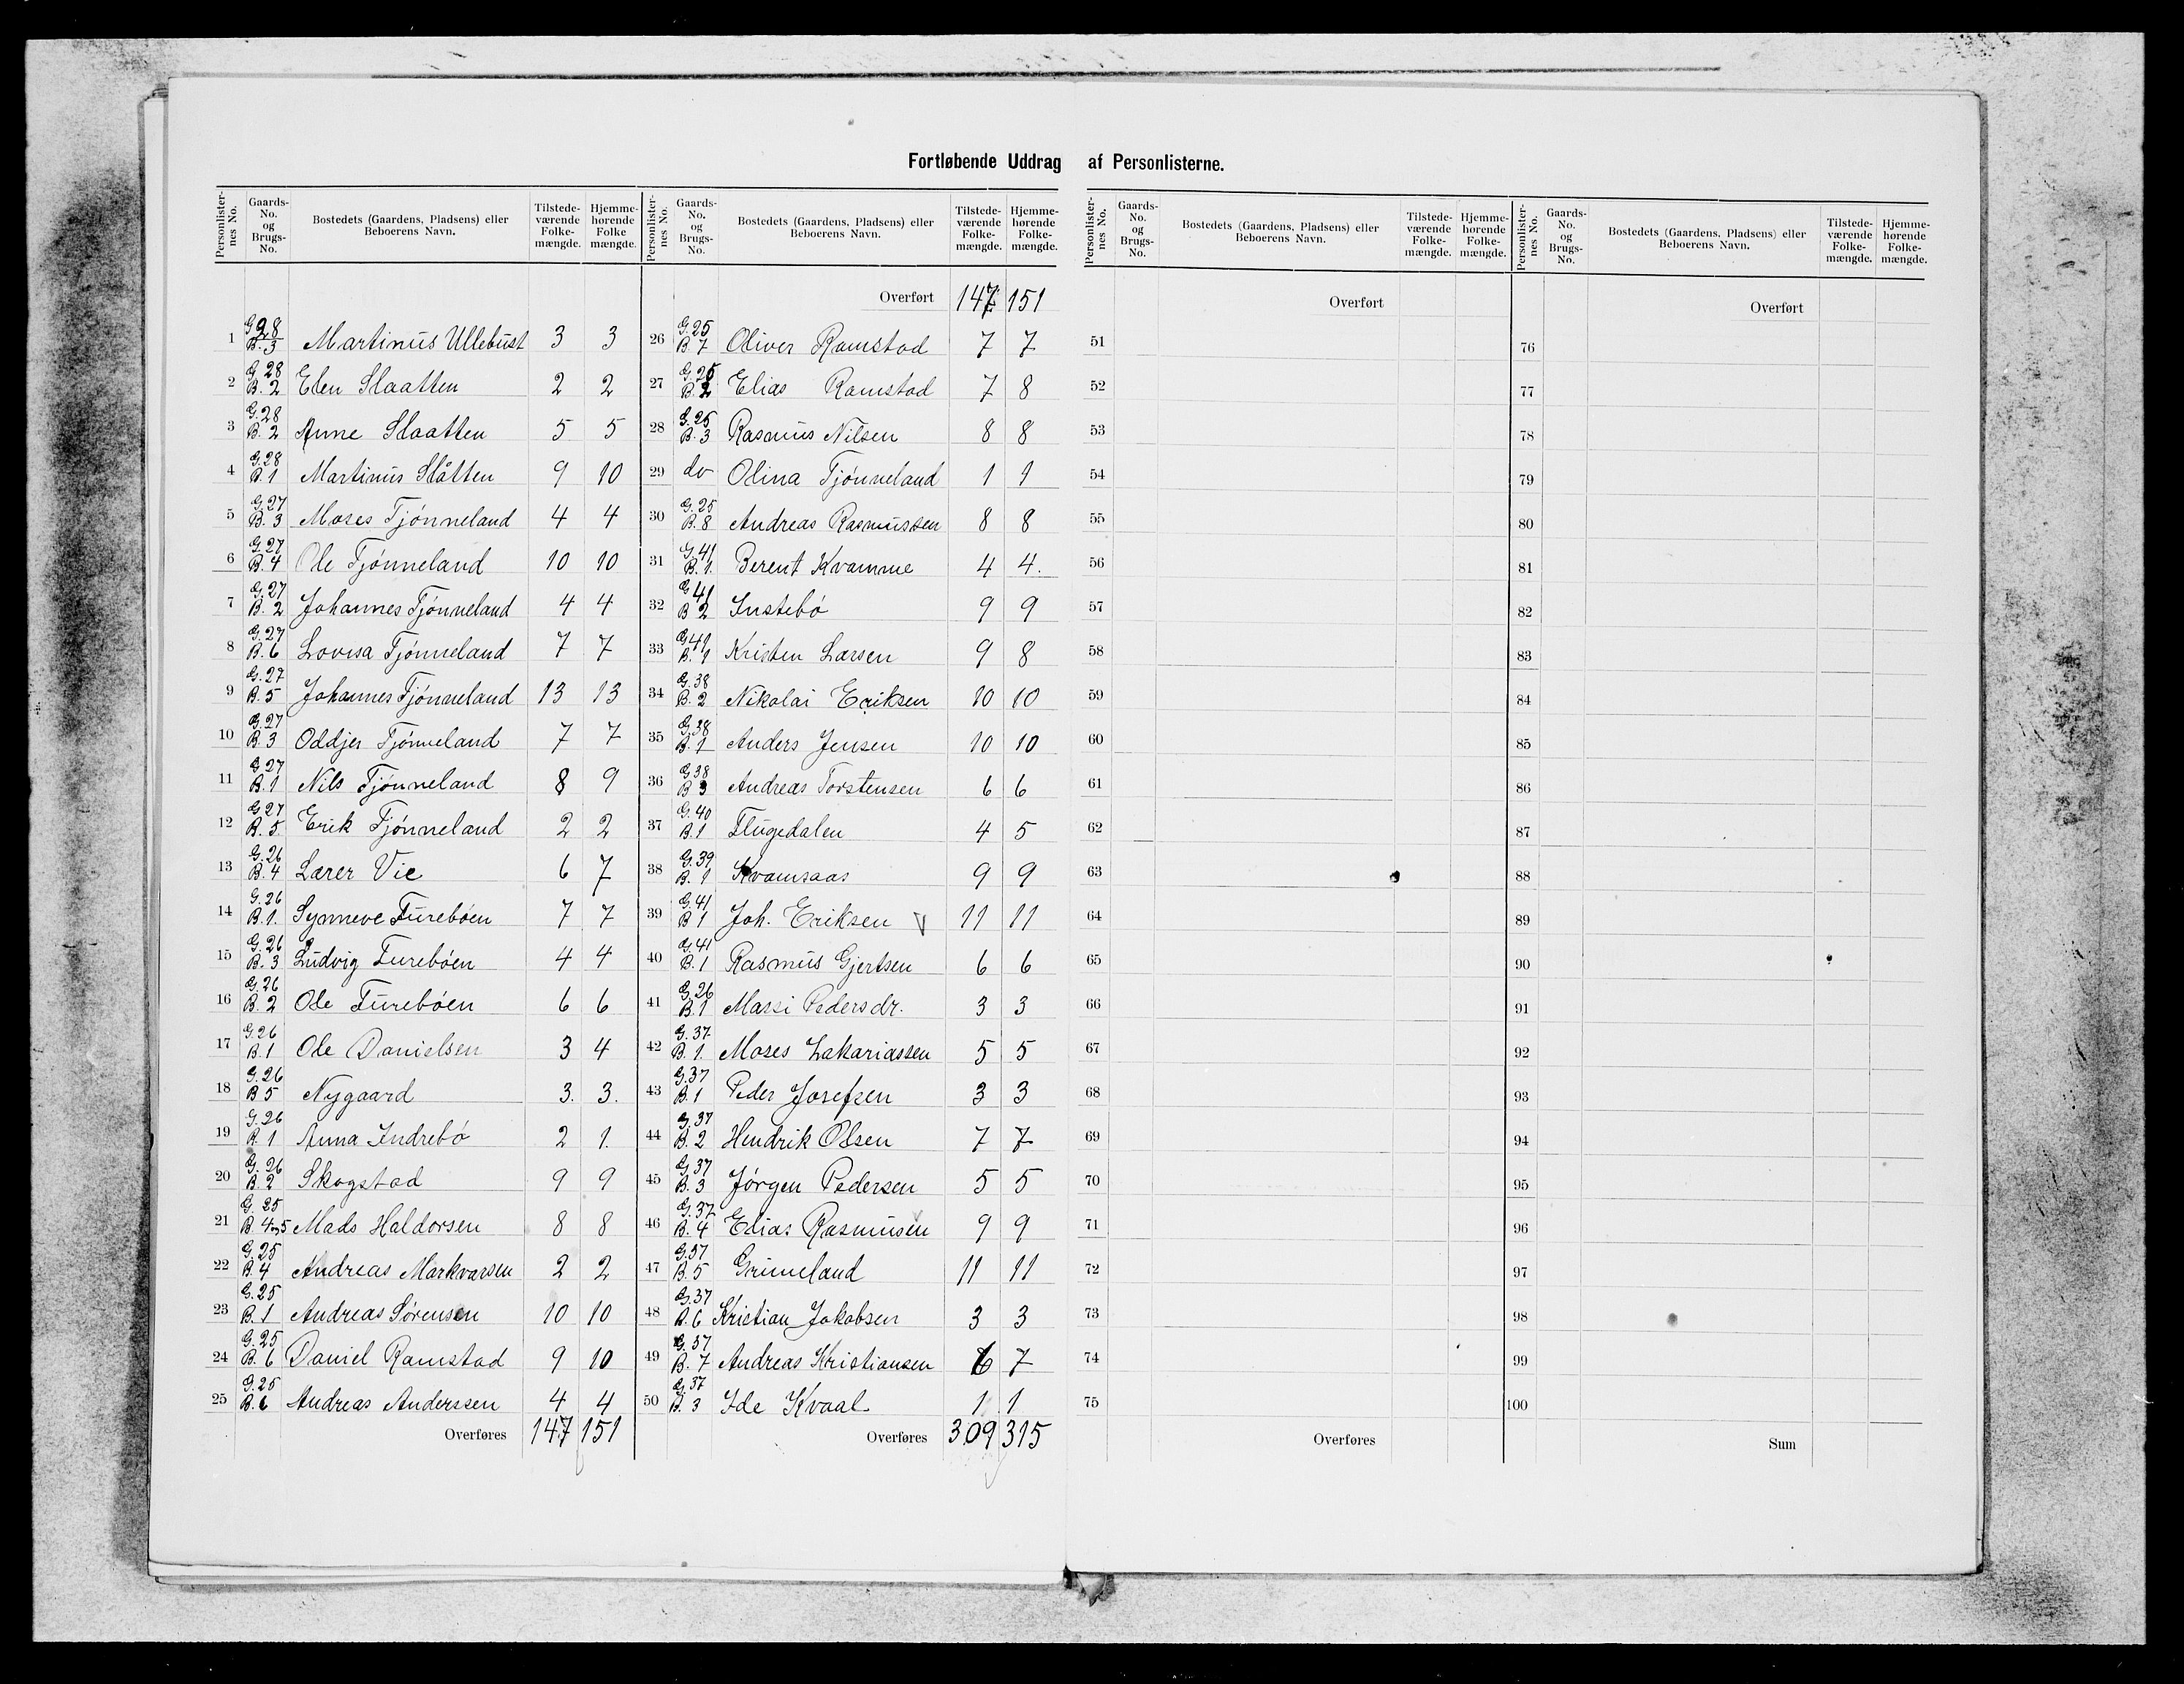 Fortløbende Uddrag af Personlisterne.
Personlister-nes No. | Gaards-No. og Brugs-No. | Bostedets (Gaardens, Pladsens) eller Beboerens Navn. | Tilstede-værende Folke-mængde. | Hjemme-hørende Folke mængde.
1 G 28 B. 3 Martinus Ullebust 3 3
2 G 28 B. 2 Elen Slaatten 2 2
3 G. 28 B. 2 Anne Slaatten 5 5
4 G. 28 B. 1 Martinus Slåtten 9 10
5 G. 27 B. 3 Moses Tjønneland 4 4
6 G. 27 B. 4 Ole Tjønneland 10 10
7 G. 27 B. 2 Johannes Tjønneland 4 4
8 G. 27 B. 6 Lovisa Tjønneland 7 7
9 G. 27 B. 5 Johannes Tjønneland 13 13
10 G. 27 B. 3 Oddjer Tjønneland 7 7
11 G 27 B. 1 Nils Tjønneland 8 9
12 G. 27 B. 5 Erik Tjønneland 2 2
13 G. 26 B. 4 Lærer Vie 6 7
14 G. 26 B. 1. Synneve Furebøen 7 7
15 G. 26 B. 3 Ludvig Furebøen 4 4
16 G. 26 B. 2 Ole Furebøen 6 6
17 G. 26 B. 1 Ole Danielsen 3 4
18 G. 26 B 5 Nygaard 3. 3.
19 G. 26 B. 1 Anna Indrebø 2 1.
20 G. 26 B. 2 Skogstad 9 9
21 G. 25 B. 4 og 5 Mads Haldorsen 8 8
22 G. 25 B. 4 Andreas Markvarsen 2 2
23 G. 25 B. 1 Andreas Sørensen 10 10
24 G. 25 B. 6 Daniel Ramstad 9 10
25 G. 25 B. 6 Andreas Anderssen 4 4
Overføres 147 151
Personlister-nes No. | Gaards-No. og Brugs-No. | Bostedets (Gaardens, Pladsens) eller Beboerens Navn. | Tilstede-værende Folke-mængde. | Hjemme-hørende Folke-mængde.
Overført 147 151
26 G. 25 B 7 Oliver Ramstad 7 7
27 G. 25 B. 2 Elias Ramstad 7 8
28 G. 25 B. 3 Rasmus Nilsen 8 8
29 do Olina Tjønneland 1 1
30 G. 25 B. 8 Andreas Rasmussen 8 8
31 G. 41 B. 1. Berent Kvamme 4 4.
32 G 41 B 2 Instebø 9 9
33 G 41 B. 1 Kristen Larsen 9 8
34 G. 38 B. 2 Nikolai Eriksen 10 10
35 G. 38 B. 1 Anders Jensen 10 10
36 G 38 B 3 Andreas Torstensen 6 6
37 G. 40 B. 1 Flugedalen 4 5
38 G. 39 B. 1 Kvamsaas 9 9
39 G. 41 B 1 Joh. Eriksen 11 11
40 G. 41 B. 1 Rasmus Gjertsen 6 6
41 G. 26 B. 1 Massi Pedersdr. 3 3
42 G. 37 B. 1. Moses Zakariassen 5 5
43 G. 37 B. 1 Peder Josefsen 3 3
44 G. 37 B. 2 Hendrik Olsen 7 7
45 G. 37 B. 3 Jørgen Pedersen 5 5
46 G. 37 B. 4 Elias Rasmusen 9 9
47 G. 37 B. 5 Grimeland 11 11
48 G. 37 B. 6 Kristian Jakobsen 3 3
49 G. 37 B. 7 Andreas Kristiansen 6 7
50 G. 37 B. 3 Ide Kvaal 1 1
Overføres 309 315
Personlister-nes No. | Gaards-No. og Brugs-No. | Bostedets (Gaardens, Pladsens) eller Beboerens Navn. | Tilstede-værende Folke-mængde. | Hjemme-hørende Folke-mængde.
Overført
51
52
53
54
55
56
57
58
59
60
61
62
63
64
65
66
67
68
69
70
71
72
73
74
75
Overføres
Personlister-nes No. | Gaards-No. og Brugs-No. | Bostedets (Gaardens, Pladsens) eller Beboerens Navn. | Tilstede-værende Folke-mængde. | Hjemme-hørende Folke-mængde.
Overført
76
77
78
79
80
81
82
83
84
85
86
87
88
89
90
91
92
93
94
95
96
97
98
99
100
Sum